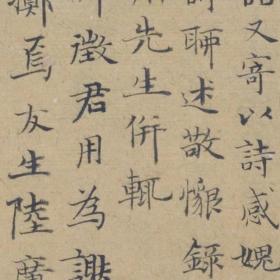 又寄以詩感媿
聊述敬懷錄
先生併輒
徵君用為謝
擲焉友生陸廣